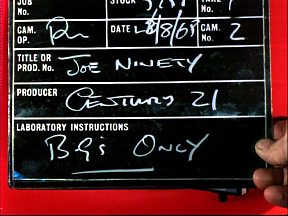 JOB No. STOCK 5251 TAKE No. 1
CAM. OP. DATE 28/8/68 CAM. No. 2
TITLE OR PROD. No. JOE NINETY
PRODUCER CENTURY 21
LABORATORY INSTRUCTIONS
BGs ONLY